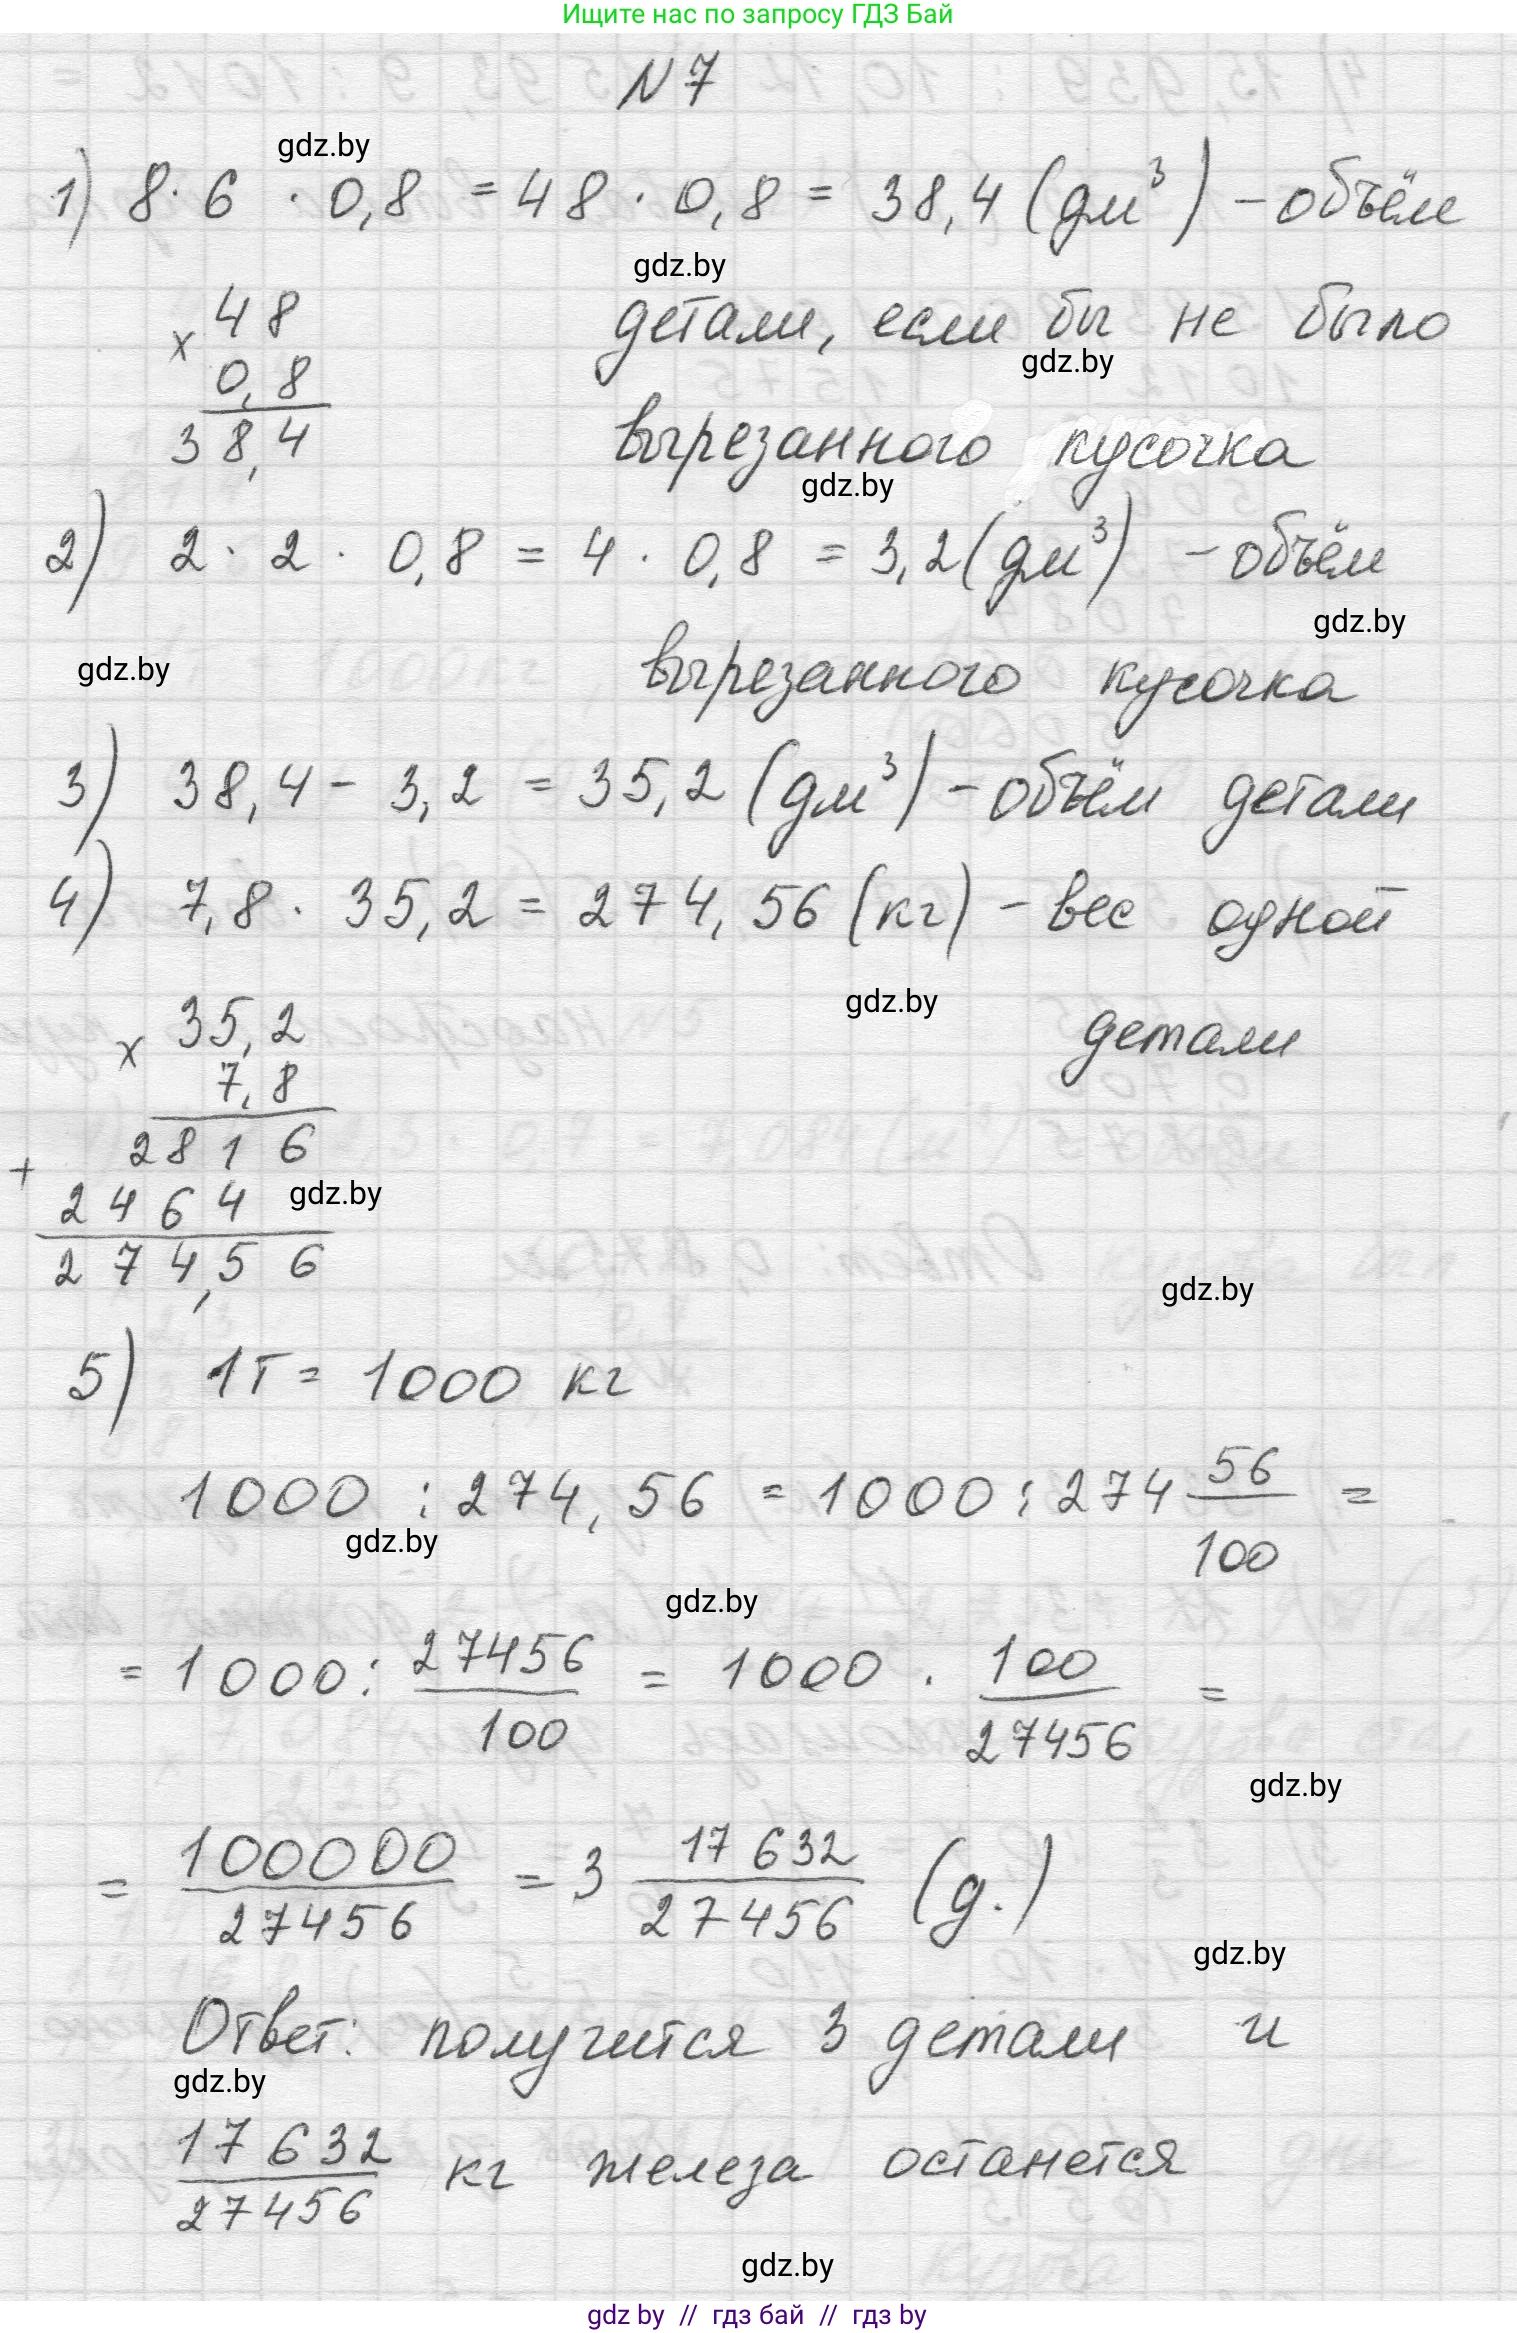 Ищите нас по запросу ГДЗ Бай
N 7
gdz.by
1) 8 · 6 · 0,8 = 48 · 0,8 = 38,4 (дм³) – объём
gdz.by
48
детали, если бы не было
x
gdz.by
0,8
38,4
вырезанного кусочка
gdz.by
2) 2 · 2 · 0,8 = 4 · 0,8 = 3,2 (дм³) – объём
gdz.by
gdz.by
вырезанного кусочка
3) 38,4 – 3,2 = 35,2 (дм³) – объём детали
4) 7,8 · 35,2 = 274,56 (кг) – вес одной
gdz.by
детали
x 35,2
7,8
2816
+
2464
gdz.by
274,56
gdz.by
5) 1т = 1000 кг
1000 : 274,56 = 1000 : 274 56/100 =
gdz.by
gdz.by
= 1000 : 27456/100 = 1000 · 100/27456 =
gdz.by
= 100000/27456 = 3 17632/27456 (д.)
gdz.by
Ответ: получится 3 детали и
gdz.by
17632/27456 кг железа останется
gdz.by
gdz by // гдз бай // гдз by